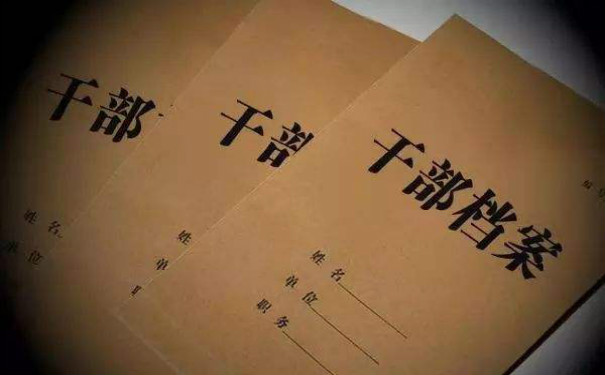 干部
姓名
单位
干部
姓名
单
干部档案
姓名
单位
职务